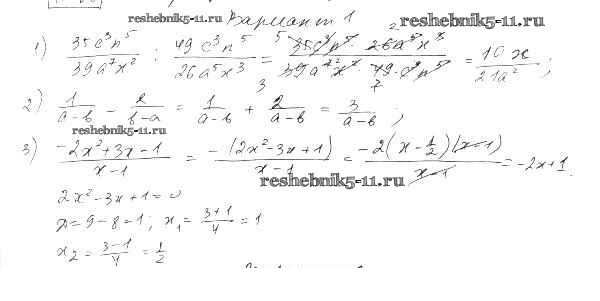 reshebnik5-11.ru Вариант 1 reshebnik5-11.ru
1) 35c³n⁵/39a⁷x² : 49c³n⁵/26a⁵x³ = 35c³n⁵ · 26a⁵x³/39a⁷x² · 49 · c³n⁵ = 10x/21a² ;
2) 1/(a-b) - 2/(b-a) = 1/(a-b) + 2/(a-b) = 3/(a-b) ;
reshebnik5-11.ru
3) (-2x²+3x-1)/(x-1) = -(2x²-3x+1)/(x-1) = -2(x-1/2)(x-1)/(x-1) = -2x+1.
reshebnik5-11.ru
2x²-3x+1=0
D=9-8=1; x₁=(3+1)/4=1
x₂=(3-1)/4=1/2